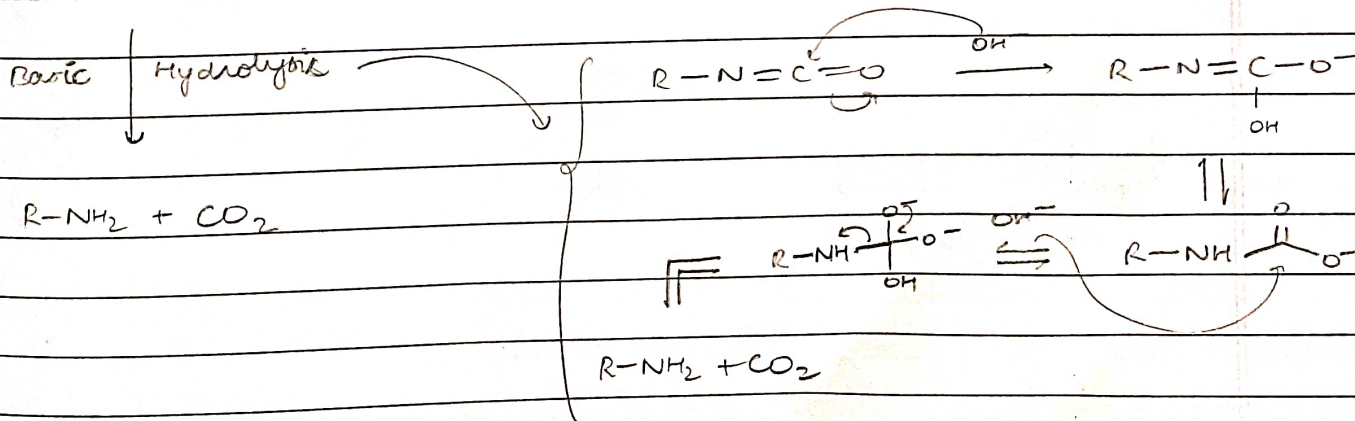 Basic Hydrolysis
R-N=C=O OH → R-N=C-O⁻
OH
R-NH₂ + CO₂
O⁻
R-NH O⁻ OH⁻ ⇌ R-NH O O⁻
OH
R-NH₂ + CO₂